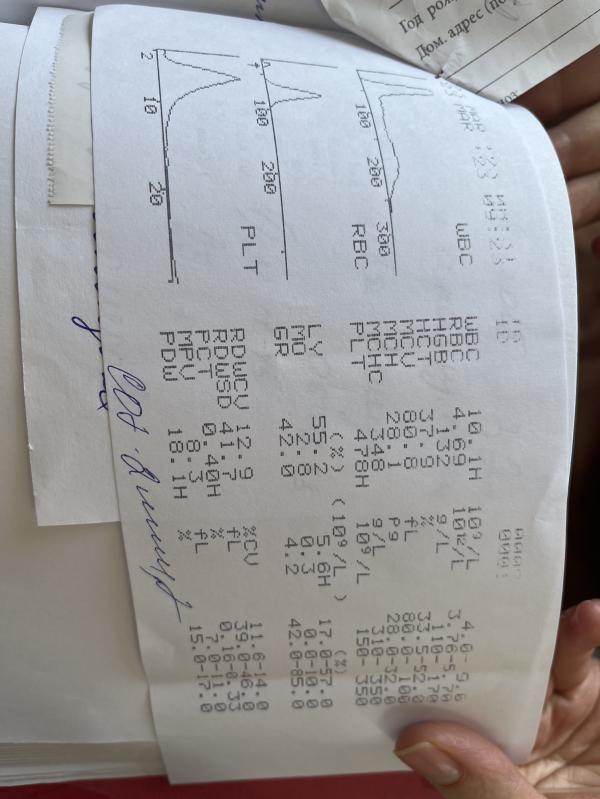 Год рож
Дом. адрес (по
09:23
ID
ID
WBC
100 200 300
RBC
100 200
PLT
2 10 20
WBC 10.1H 10⁹/L 4.0- 9.6
RBC 4.69 10¹²/L 3.76-5.70
HGB 132 g/L 110- 170
HCT 37.9 % 33.5-52.0
MCV 80.8 fL 80.0-100
MCH 28.1 pg 28.0-32.0
MCHC 348 g/L 310- 350
PLT 478H 10⁹/L 150- 350
(%) (10⁹/L ) (%)
LY 55.2 5.6H 17.0-57.0
MO 2.8 0.3 0.0-10.0
GR 42.0 4.2 42.0-85.0
RDWCV 12.9 %CV 11.6-14.0
RDWSD 41.7 fL 39.0-46.0
PCT 0.40H % 0.16-0.33
MPV 8.3 fL 7.0-11.0
PDW 18.1H % 15.0-17.0